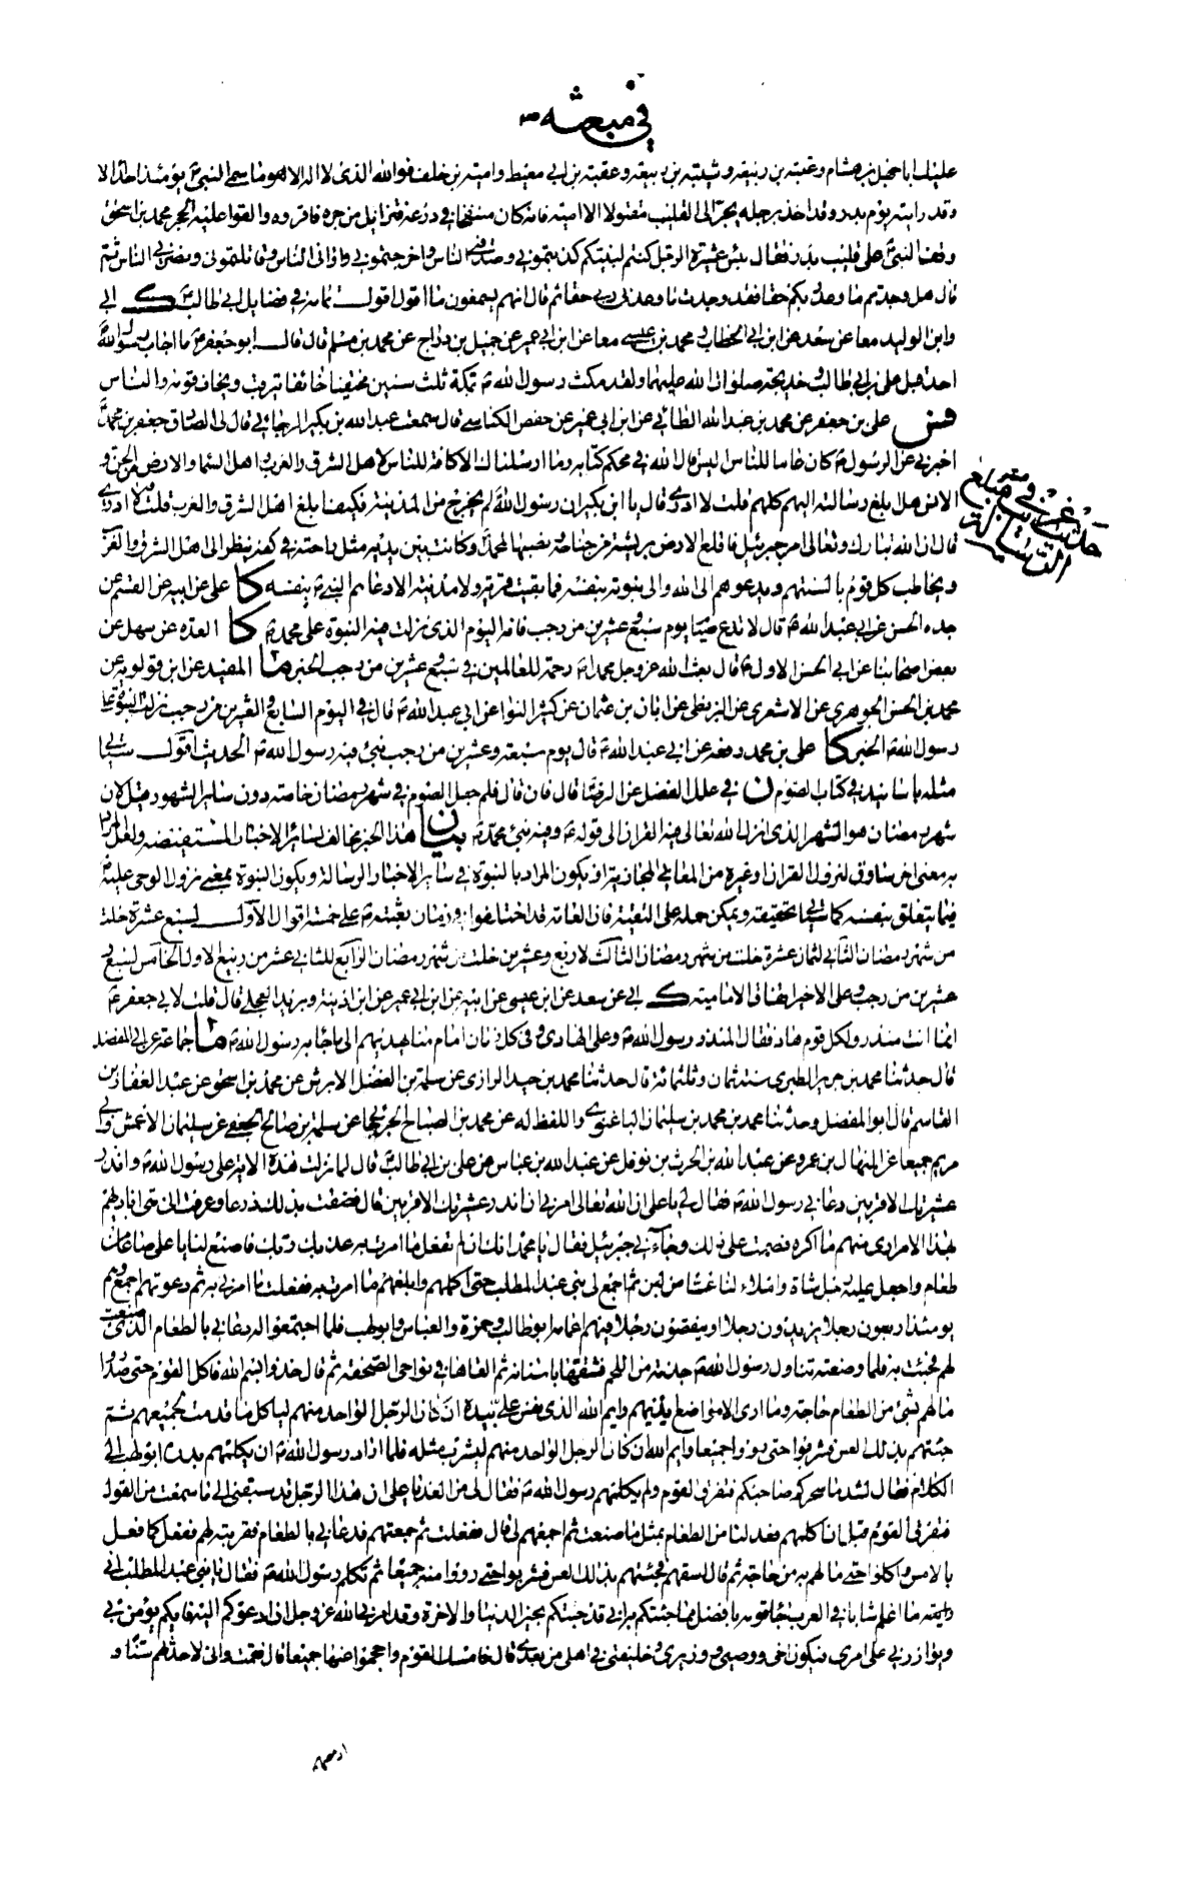 في مبعثه ص
عليك ابا جهل بن هشام وعتبة بن ربيعة وشيبة بن ربيعة وعقبة بن ابي معيط وامية بن خلف فوالله الذي لا اله الا هو ما سمى النبي ص يومئذ احدا الا
وقد رايته يوم بدر وقد اخذ برجله يجر الى القليب مقتولا الا امية فانه كان منتفخا في درعه فتزايل من جره فاقروه والقوا عليه الحجر محمد بن اسحق
وقف النبي ص على قليب بدر فقال بئس عشيرة الرجل كنتم لنبيكم كذبتموني وصدقني الناس واخرجتموني واواني الناس وقاتلتموني ونصرني الناس ثم
قال هل وجدتم ما وعدكم ربكم حقا فقد وجدت ما وعدني ربي حقا ثم قال انهم يسمعون ما اقول اقول تمامه في فضايل ابي طالب ك ابي
وابن الوليد معا عن سعد عن ابن ابي الخطاب ومحمد بن عيسى معا عن ابن ابي عمير عن جميل بن دراج عن محمد بن مسلم قال قال ابو جعفر ع ما اجاب رسول الله
احد قبل علي بن ابي طالب وخديجة صلوات الله عليهما ولقد مكث رسول الله ص بمكة ثلث سنين مختفيا خائفا يترقب ويخاف قومه والناس
فس علي بن جعفر عن محمد بن عبدالله الطائي عن ابن ابي عمير عن حفص الكناسي قال سمعت عبدالله بن بكير الرجاني قال لي الصادق جعفر بن محمد
اخبرني عن الرسول ص كان عاما للناس اليس قال الله في محكم كتابه وما ارسلناك الا كافة للناس لاهل الشرق والغرب واهل السما والارض من الجن و
الانس هل بلغ رسالته اليهم كلهم قلت لا ادري قال يا ابن بكير ان رسول الله لم يخرج من المدينة فكيف ابلغ اهل الشرق والغرب قلت لا ادري
قال ان الله تبارك وتعالى امر جبرئيل فاقلع الارض بريشة من جناحه ونصبها لمحمد وكانت بين يديه مثل راحته في كفه ينظر الى اهل الشرق والغرب
ويخاطب كل قوم بالسنتهم ويدعوهم الى الله والى نبوته بنفسه فما بقيت قرية ولا مدينة الا دعاهم النبي ص بنفسه كا علي عن ابيه عن القسم عن
جده الحسن عن ابي عبدالله ع قال لا تدع صيام يوم سبع وعشرين من رجب فانه اليوم الذي نزلت فيه النبوة على محمد ص كا العدة عن سهل عن
بعض اصحابنا عن ابي الحسن الاول ع قال بعث الله عز وجل محمدا ص رحمة للعالمين في سبع وعشرين من رجب الخبر ما المفيد عن ابن قولويه عن
محمد بن الحسن الجوهري عن الاشعري عن البزنطي عن ابان بن عثمان عن كثير النوا عن ابي عبدالله ع قال في اليوم السابع والعشرين من رجب نزلت النبوة على
رسول الله ص الخبر كا علي بن محمد رفعه عن ابي عبدالله ع قال يوم سبعة وعشرين من رجب نبئ فيه رسول الله ص الحديث اقول سياتي
مثله باسانيد في كتاب الصوم ن في علل الفضل عن الرضا قال فان قال فلم جعل الصوم في شهر رمضان خاصة دون سائر الشهور قيل لان
شهر رمضان هو الشهر الذي انزل الله تعالى فيه القران الى قوله ع وفيه نبئ محمد ص بيان هذا الخبر مخالف لسائر الاخبار المستفيضة ولعل المراد
به معنى اخر ساوق لنزول القران او غيره من المعاني المجازية او يكون المراد بالنبوة في سائر الاخبار الرسالة ويكون النبوة بمعنى نزول الوحي عليه ص
فيما يتعلق بنفسه كما سياتي تحقيقه ويمكن حمله على التقية فان العامة قد اختلفوا في زمان بعثته ص على خمسة اقوال الاول لسبع عشرة خلت
من شهر رمضان الثاني لثمان عشرة خلت من شهر رمضان الثالث لاربع وعشرين خلت من شهر رمضان الرابع للثاني عشر من ربيع الاول الخامس لسبع و
عشرين من رجب وعلى الاخير اتفاق الامامية ك ابي عن سعد عن ابن عيسى عن ابيه عن ابن ابي عمير عن ابن اذينة وبريد العجلي قال قلت لابي جعفر ع
انما انت منذر ولكل قوم هاد فقال المنذر رسول الله ص وعلي الهادي وفي كل زمان امام منا يهديهم الى ما جاء به رسول الله ص ما جماعة عن ابي المفضل
قال حدثنا محمد بن جرير الطبري سنة ثمان وثلثمائة قال حدثنا محمد بن حميد الرازي عن سلمة بن الفضل الابرش عن محمد بن اسحق عن عبد الغفار بن
القاسم قال ابو المفضل وحدثنا محمد بن محمد بن سليمان الباغندي واللفظ له عن محمد بن الصباح الجرجرائي عن سلمة بن صالح الجعفي عن سليمان الاعمش وابي
مريم جميعا عن المنهال بن عمرو عن عبدالله بن الحرث بن نوفل عن عبدالله بن عباس عن علي بن ابي طالب قال لما نزلت هذه الاية على رسول الله ص وانذر
عشيرتك الاقربين دعاني رسول الله ص فقال لي يا علي ان الله تعالى امرني ان انذر عشيرتك الاقربين قال فضقت بذلك ذرعا وعرفت اني متى اباديهم
بهذا الامر ارى منهم ما اكره فصمت على ذلك وجاءني جبرئيل فقال يا محمد انك ان لم تفعل ما امرت به عذبك ربك فاصنع لنا يا علي صاعا من
طعام واجعل عليه رجل شاة واملاء لنا عسا من لبن ثم اجمع لي بني عبد المطلب حتى اكلمهم وابلغهم ما امرت به ففعلت ما امرني به ثم دعوتهم اجمع وهم
يومئذ اربعون رجلا يزيدون رجلا او ينقصون رجلا فيهم اعمامه ابو طالب وحمزة والعباس وابو لهب فلما اجتمعوا له دعاني بالطعام الذي صنعت
لهم فجئت به فلما وضعته تناول رسول الله ص جذمة من اللحم فشقها باسنانه ثم القاها في نواحي الصحفة ثم قال خذوا بسم الله فاكل القوم حتى صدروا
ما لهم بشيء من الطعام حاجة وما ارى الا مواضع ايديهم وايم الله الذي نفس علي بيده ان كان الرجل الواحد منهم لياكل ما قدمت لجميعهم ثم
جئتهم بذلك العس فشربوا حتى رووا جميعا وايم الله ان كان الرجل الواحد منهم ليشرب مثله فلما اراد رسول الله ص ان يكلمهم بدره ابو لهب الى
الكلام فقال لشد ما سحركم صاحبكم فتفرق القوم ولم يكلمهم رسول الله ص فقال لي من الغد يا علي ان هذا الرجل قد سبقني الى ما سمعت من القول
فتفرق القوم قبل ان اكلمهم فعد لنا من الطعام بمثل ما صنعت ثم اجمعهم لي قال ففعلت ثم جمعتهم فدعاني بالطعام فقربته لهم ففعل كما فعل
بالامس واكلوا حتى ما لهم به من حاجة ثم قال اسقهم فجئتهم بذلك العس فشربوا حتى رووا منه جميعا ثم تكلم رسول الله ص فقال يا بني عبد المطلب اني
والله ما اعلم شابا في العرب جاء قومه بافضل مما جئتكم به اني قد جئتكم بخير الدنيا والاخرة وقد امرني الله عز وجل ان ادعوكم اليه فايكم يؤمن بي
ويوازرني على امري فيكون اخي ووصيي ووزيري وخليفتي في اهلي من بعدي قال فامسك القوم واحجموا عنها جميعا قال فقمت واني لاحدثهم سنا و
حديث غريب في
الرسالة
ارمصهم